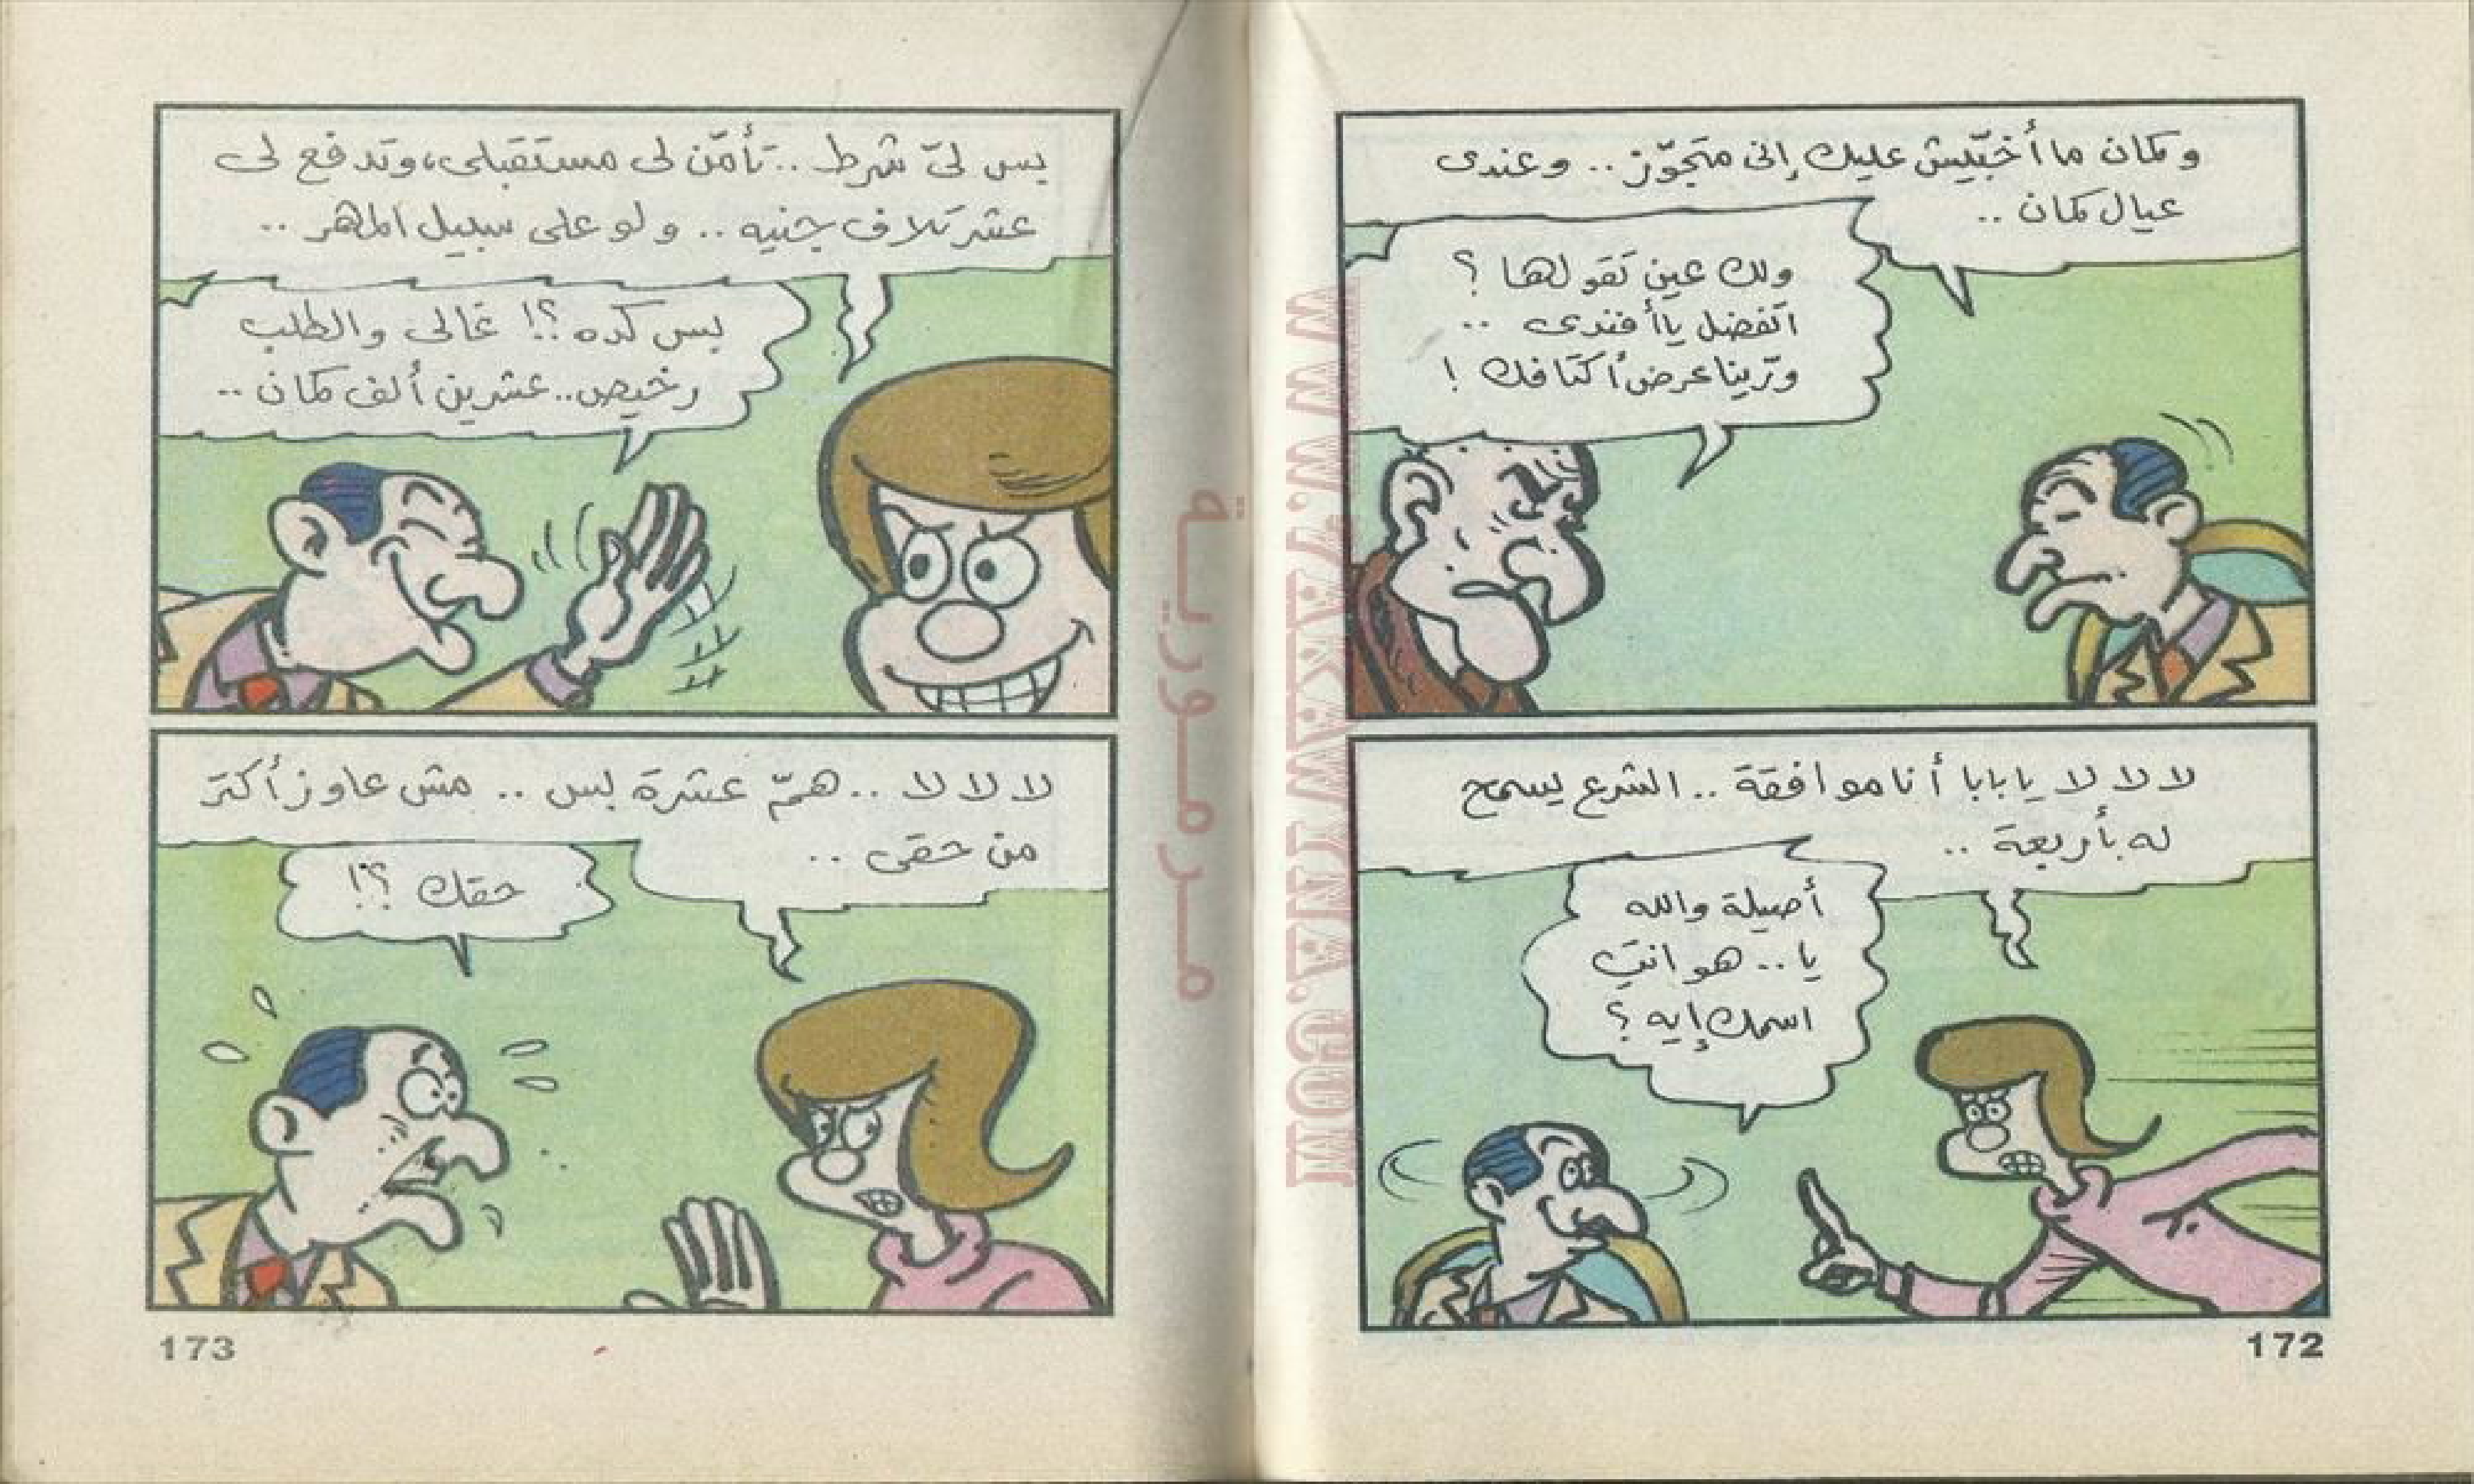 وكمان ما أخبّيش عليك إنى متجوّز .. وعندى
عيال كمان ..
ولك عين تقولها ؟
اتفضل يا أفندى ..
ورّينا عرض أكتافك !
لا لا لا يا بابا أنا موافقة .. الشرع يسمح
له بأربعة ..
أصيلة والله
يا .. هو انتِ
اسمك إيه ؟
172
بس لىّ شرط .. تأمّن لى مستقبلى، وتدفع لى
عشر تلاف جنيه .. ولو على سبيل المهر ..
بس كده ؟! غالى والطلب
رخيص .. عشرين ألف كمان ..
لا لا لا .. همّ عشرة بس .. مش عاوز أكتر
من حقى ..
حقك ؟!
173
مـرمـوريـة